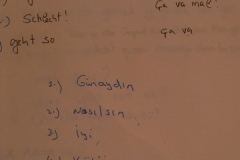 Ça va mal!
Schlecht!
Ça va
geht so
1.) Günaydın
2.) Nasılsın
3) İyi